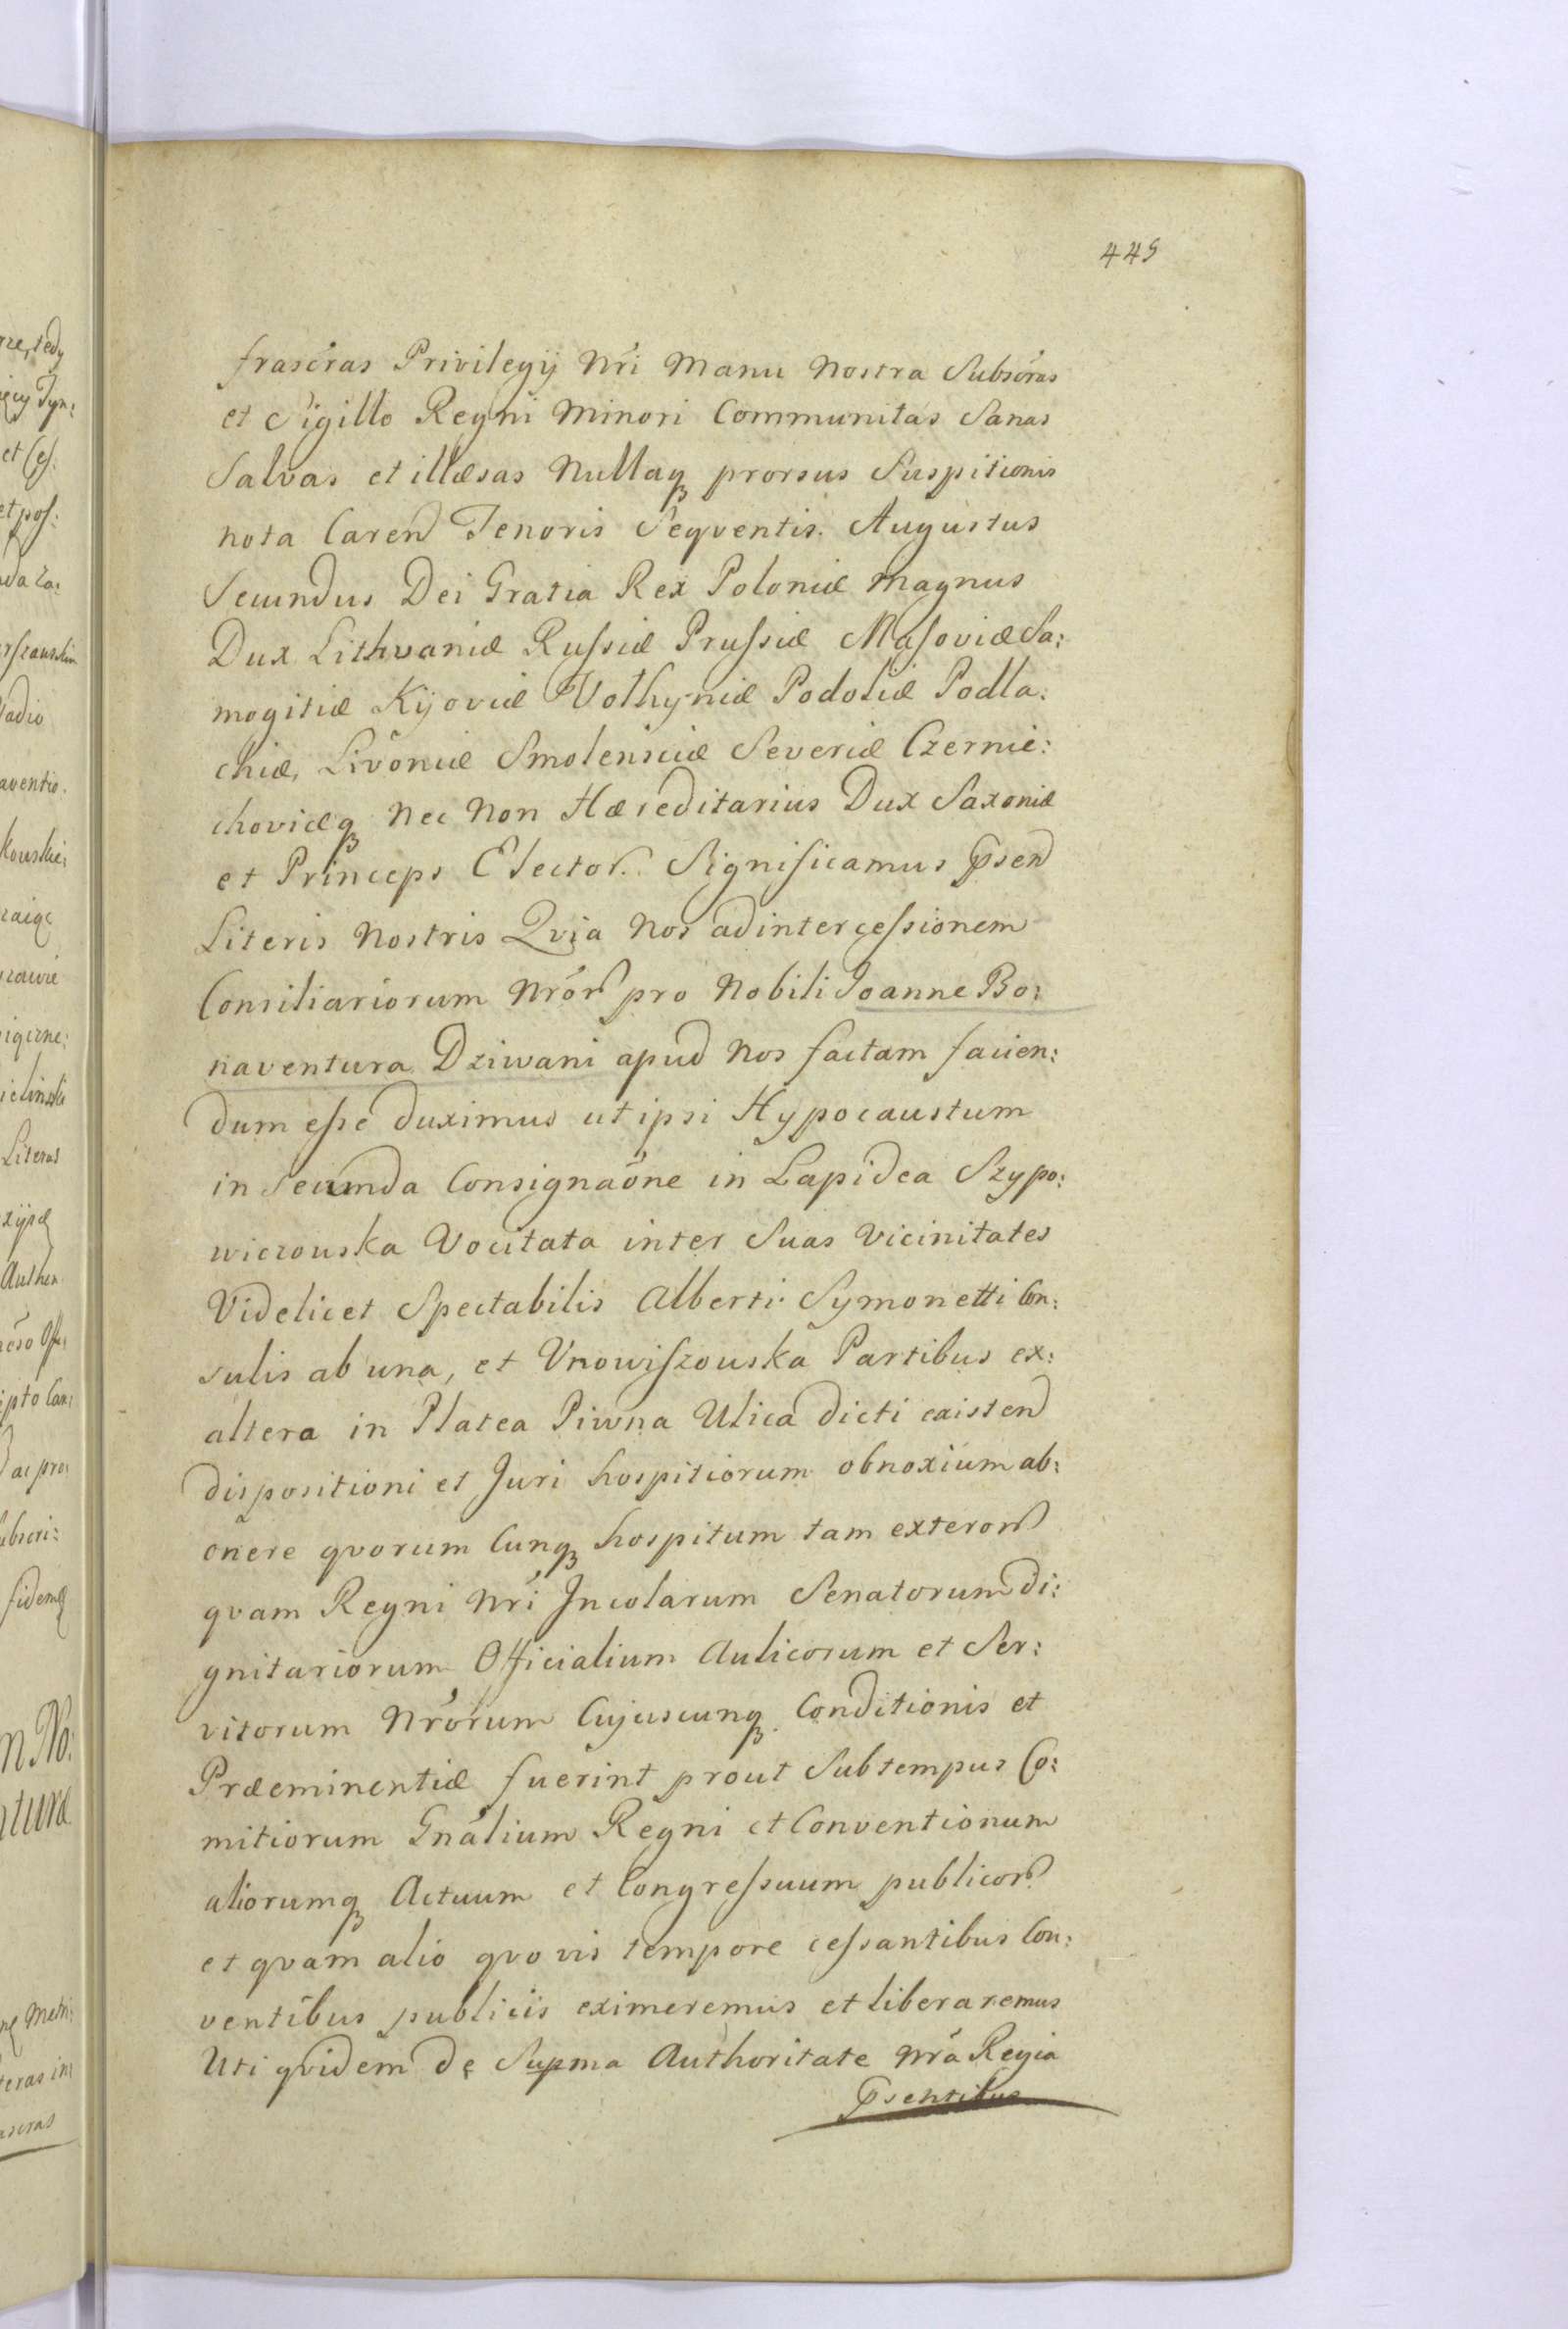 445
frascras Privilegij Nri Manu Nostra Subscras
et Sigillo Regni Minori Communitas Sanas
Salvas et illæsas Nullaq prorsus Suspitionis
nota Caren Tenoris Seqventis. Augustus
Secundus Dei Gratia Rex Poloniæ Magnus
Dux Lithvaniæ Russiæ Prussiæ Masoviæ Sa:
mogitiæ Kijoviæ Volhyniæ Podoliæ Podla:
chiæ, Livoniæ Smolensciæ Severiæ Czernie:
choviæq Nec Non Hæreditarius Dux Saxoniæ
et Princeps Elector. Significamus Psen
Literis Nostris Qvia Nos ad intercessionem
Consiliariorum Nror pro Nobili Joanne Bo:
naventura Dziwani apud Nos factam facien:
dum esse duximus ut ipsi Hypocaustum
in Secunda Consignaone in Lapidea Szypo:
wiczowska Vocitata inter Suas Vicinitates
Videlicet Spectabilis Alberti Symonetti Con:
sulis ab una, et Vnowiszowska Partibus ex:
altera in Platea Piwna Ulica dicti existen
dispositioni et Juri hospitiorum obnoxium ab:
onere qvorum Cunq hospitum tam exteror
qvam Regni Nri Incolarum Senatorum di:
gnitariorum Officialium Aulicorum et Ser:
vitorum Nrorum Cujuscunq Conditionis et
Præeminentiæ fuerint prout Sub tempus Co:
mitiorum Gnalium Regni et Conventionum
aliorumq Actuum et Congressuum publicor
et qvam alio qvo vis tempore cessantibus Con:
ventibus publicis eximeremus et liberaremus
Uti qvidem de Supma Authoritate Nra Regia
Psentibus